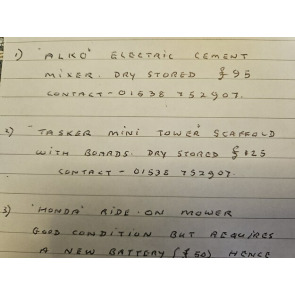 1) "ALKO" ELECTRIC CEMENT
MIXER. DRY STORED £95
CONTACT - 01538 752907.
2) "TASKER MINI TOWER" SCAFFOLD
WITH BOARDS. DRY STORED £125
CONTACT - 01538 752907.
3) "HONDA" RIDE-ON MOWER
GOOD CONDITION BUT REQUIRES
A NEW BATTERY (£50) HENCE